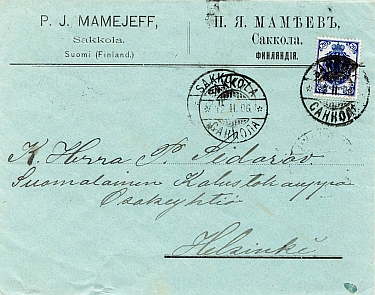 P. J. MAMEJEFF,
Sakkola.
Suomi (Finland.)
П. Я. МАМѢЕВЪ,
Саккола.
ФИНЛЯНДІЯ.
SAKKOLA
II.06
САККОЛА
САККОЛА
K. Herra P. Sidorov
Suomalainen Kalustokauppa
Osakeyhtiö
Helsinki.